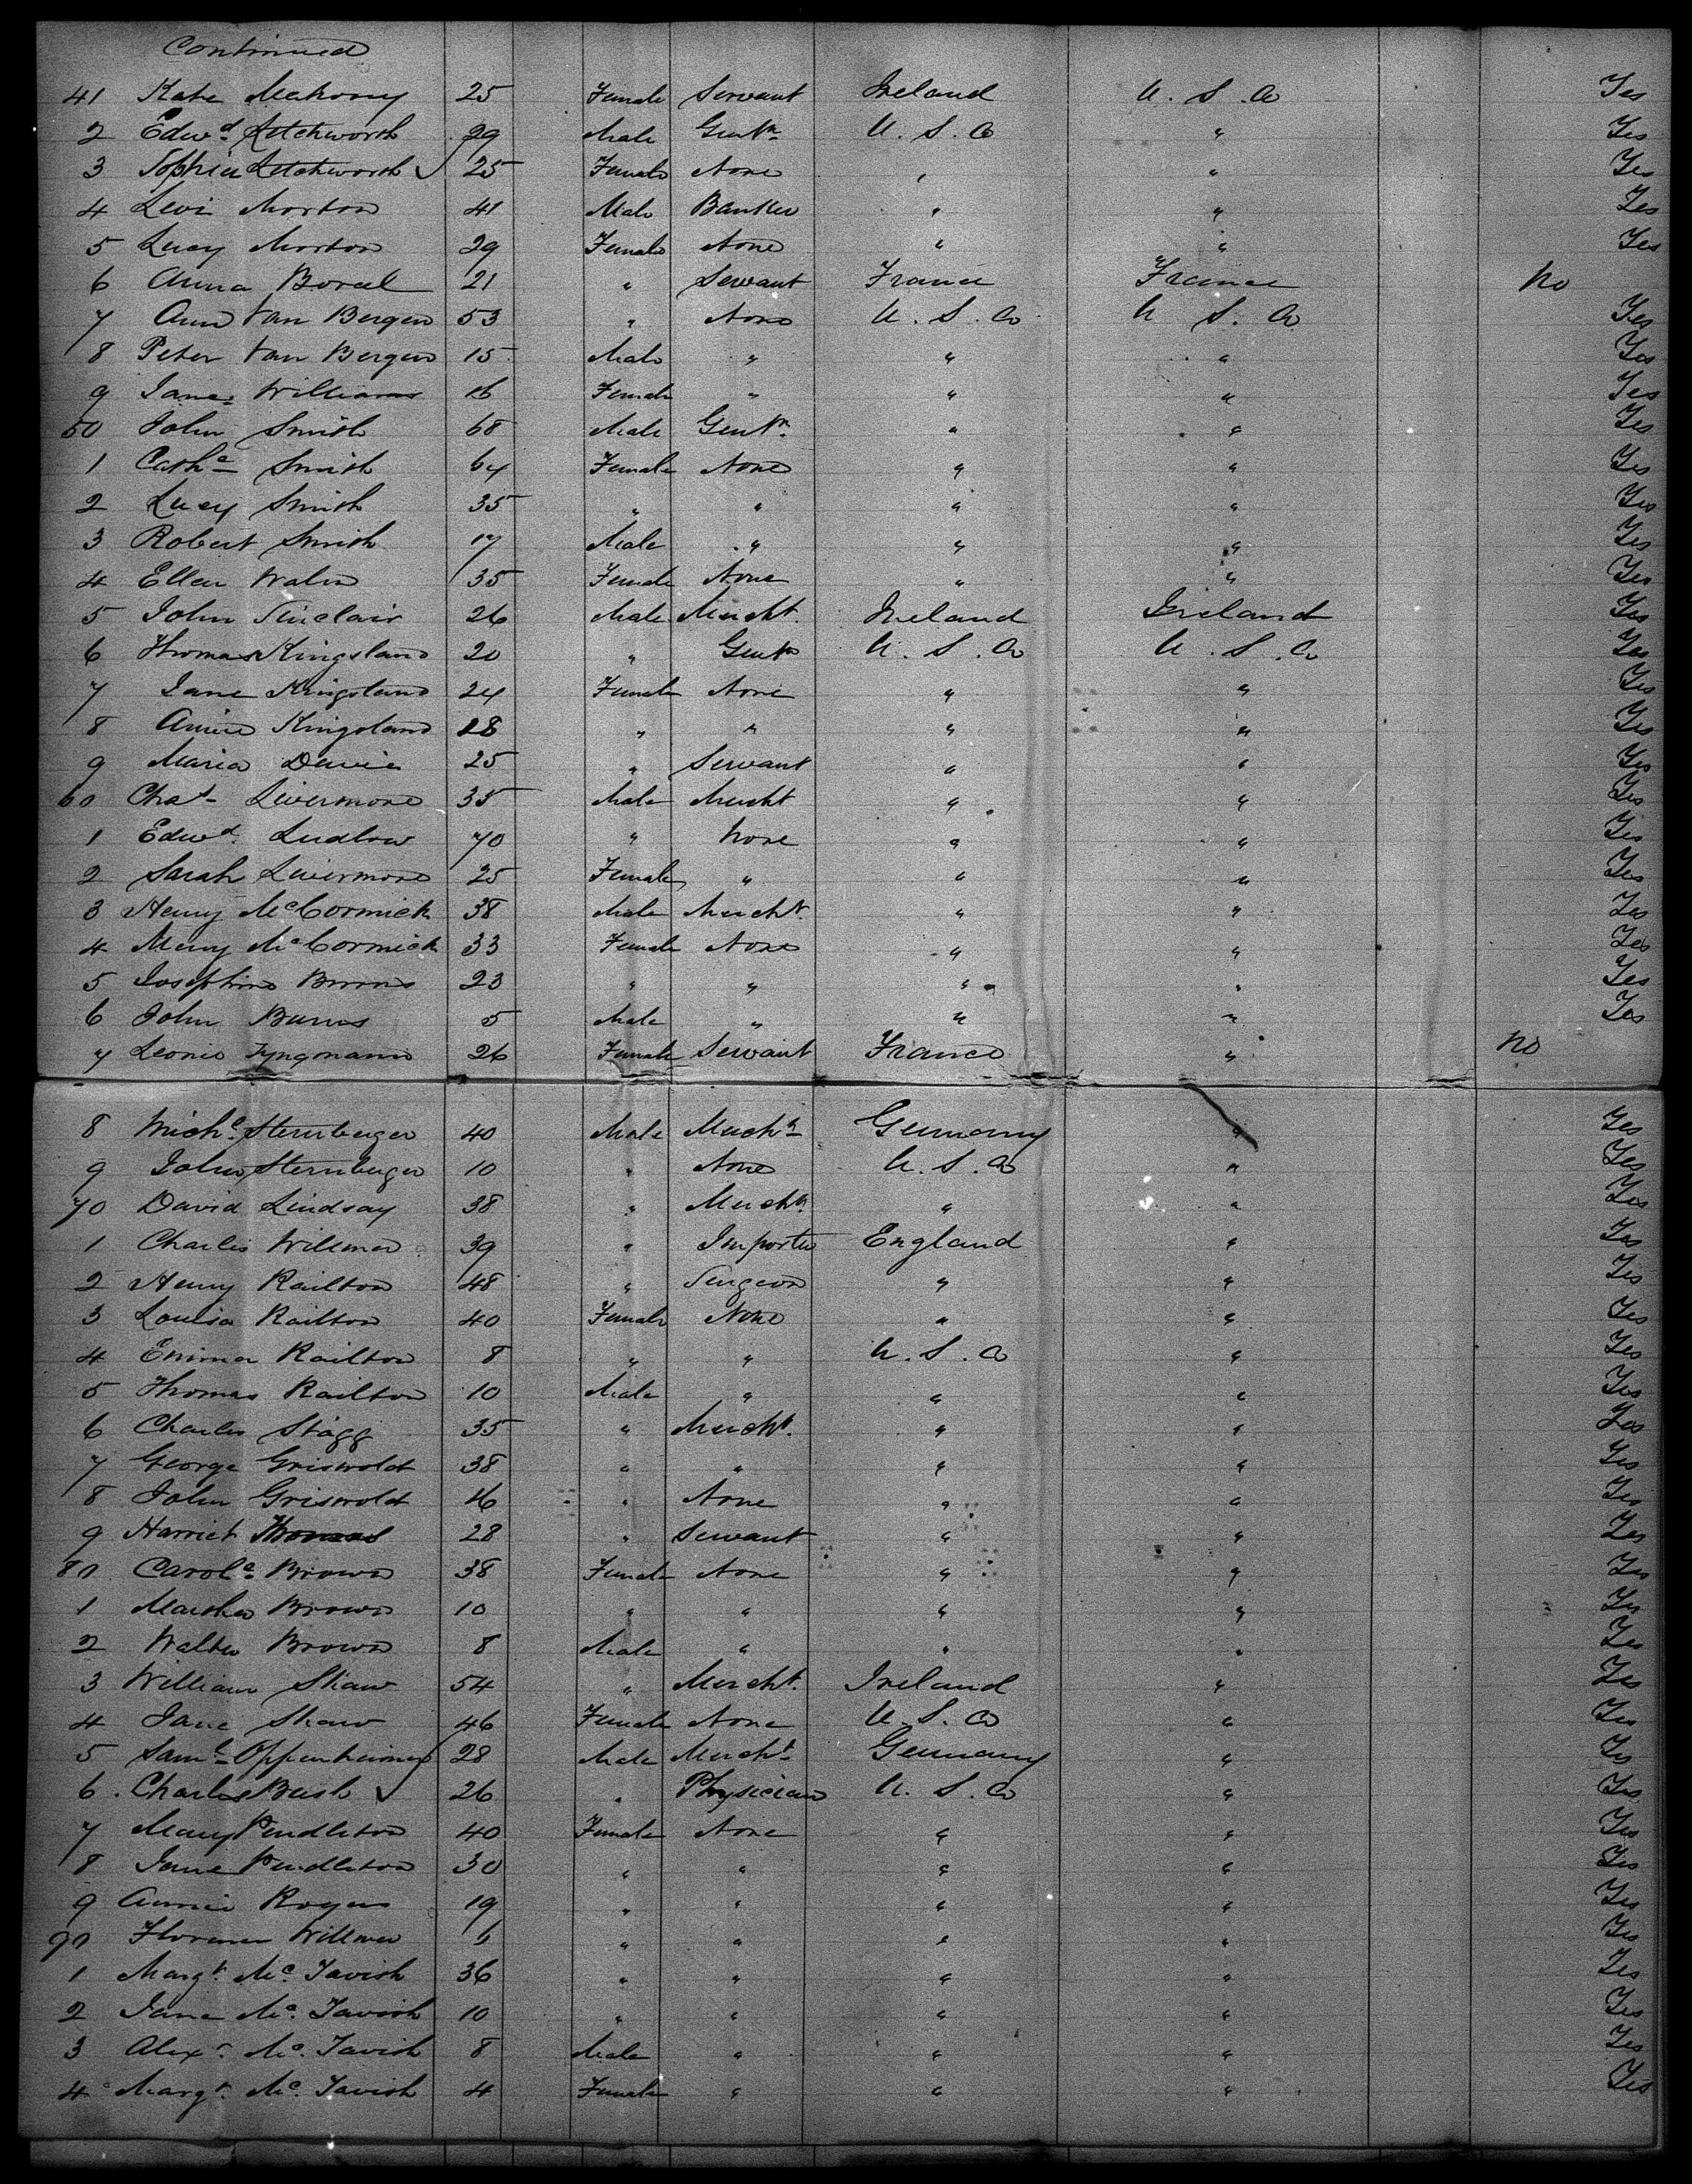 Continued
41 Kate Mahony 25 Female Servant Ireland U. S. A Yes
2 Edwd Letchworth 29 Male Gentn U. S. A " Yes
3 Sophia Letchworth ✓ 25 Female None " " Yes
4 Levi Morton 41 Male Banker " " Yes
5 Lucy Morton 29 Female None " " Yes
6 Anna Boreel 21 " Servant France France No
7 Ann Van Bergen 53 " None U. S. A U S. A Yes
8 Peter Van Bergen 15 Male " " " Yes
9 James Williams 16 Female " " " Yes
50 John Smith 68 Male Gentn " " Yes
1 Cathe Smith 64 Female None " " Yes
2 Lucy Smith 35 " " " " Yes
3 Robert Smith 17 Male " " " Yes
4 Ellen Waln 35 Female None " " Yes
5 John Sinclair 26 Male Mercht. Ireland Ireland Yes
6 Thomas Kingsland 20 " Gentn U. S. A U. S. A Yes
7 Jane Kingsland 24 Female None " " Yes
8 Annie Kingsland 18 " " " " Yes
9 Maria Davis 25 " Servant " " Yes
60 Chas Livermore 35 Male Mercht " " Yes
1 Edwd. Ludlow 70 " None " " Yes
2 Sarah Livermore 25 Female " " " Yes
3 Henry McCormick 38 Male Mercht. " " Yes
4 Mary McCormick 33 Female None " " Yes
5 Josephine Burns 23 " " " " Yes
6 John Burns 5 Male " " " Yes
7 Leonie 26 Female Servant France " No
8 Michl Sternberger 40 Male Mercht Germany " Yes
9 John Sternberger 10 " None U. S. A " Yes
70 David Lindsay 38 " Mercht. " " Yes
1 Charles Willmer 39 " Importer England " Yes
2 Henry Railton 48 " Surgeon " " Yes
3 Louisa Railton 40 Female None " " Yes
4 Emma Railton 8 " " U. S. A " Yes
5 Thomas Railton 10 Male " " " Yes
6 Charles Stagg 35 " Mercht. " " Yes
7 George Griswold 38 " " " " Yes
8 John Griswold 16 " None " " Yes
9 Harriet Thomas 28 " Servant " " Yes
80 Carole Brown 38 Female None " " Yes
1 Martha Brown 10 " " " " Yes
2 Walter Brown 8 Male " " " Yes
3 William Shaw 54 " Mercht. Ireland " Yes
4 Jane Shaw 46 Female None U. S. A " Yes
5 Saml Oppenheimer 28 Male Mercht Germany " Yes
6 Charles Bush ✓ 26 " Physician U. S. A " Yes
7 Mary Pendleton 40 Female None " " Yes
8 Jane Pendleton 30 " " " " Yes
9 Annie Rogers 19 " " " " Yes
90 Florence Willmer 6 " " " " Yes
1 Margt. Mc. Tavish 36 " " " " Yes
2 Jane Mc. Tavish 10 " " " " Yes
3 Alexr. Mc. Tavish 8 Male " " " Yes
4 Margt. Mc. Tavish 4 Female " " " Yes